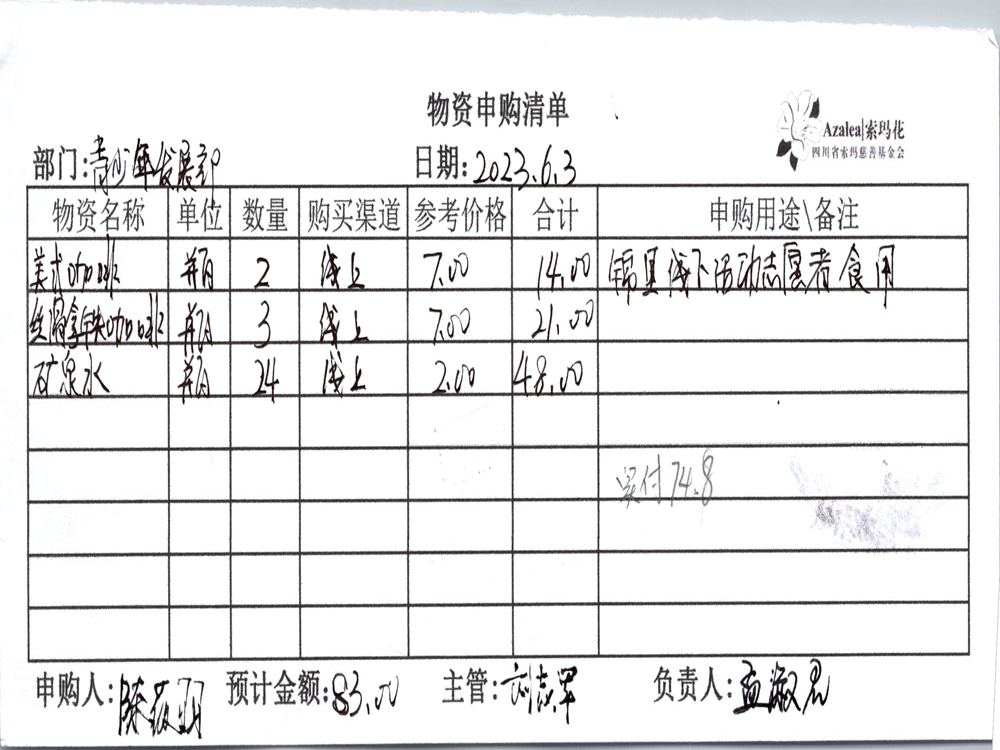 物资申购清单
Azalea|索玛花
四川省索玛慈善基金会
部门:青少年发展部 日期:2023.6.3
物资名称 单位 数量 购买渠道 参考价格 合计 申购用途\备注
美式咖啡 瓶 2 线上 7.00 14.00 锦里线下活动志愿者食用
丝滑拿铁咖啡 瓶 3 线上 7.00 21.00
矿泉水 瓶 24 线上 2.00 48.00
实付74.8
申购人: 预计金额:83.00 主管: 负责人: